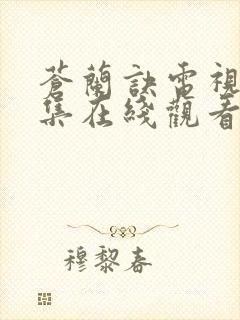 蒼蘭訣電視
集在綫觀看
穆黎春